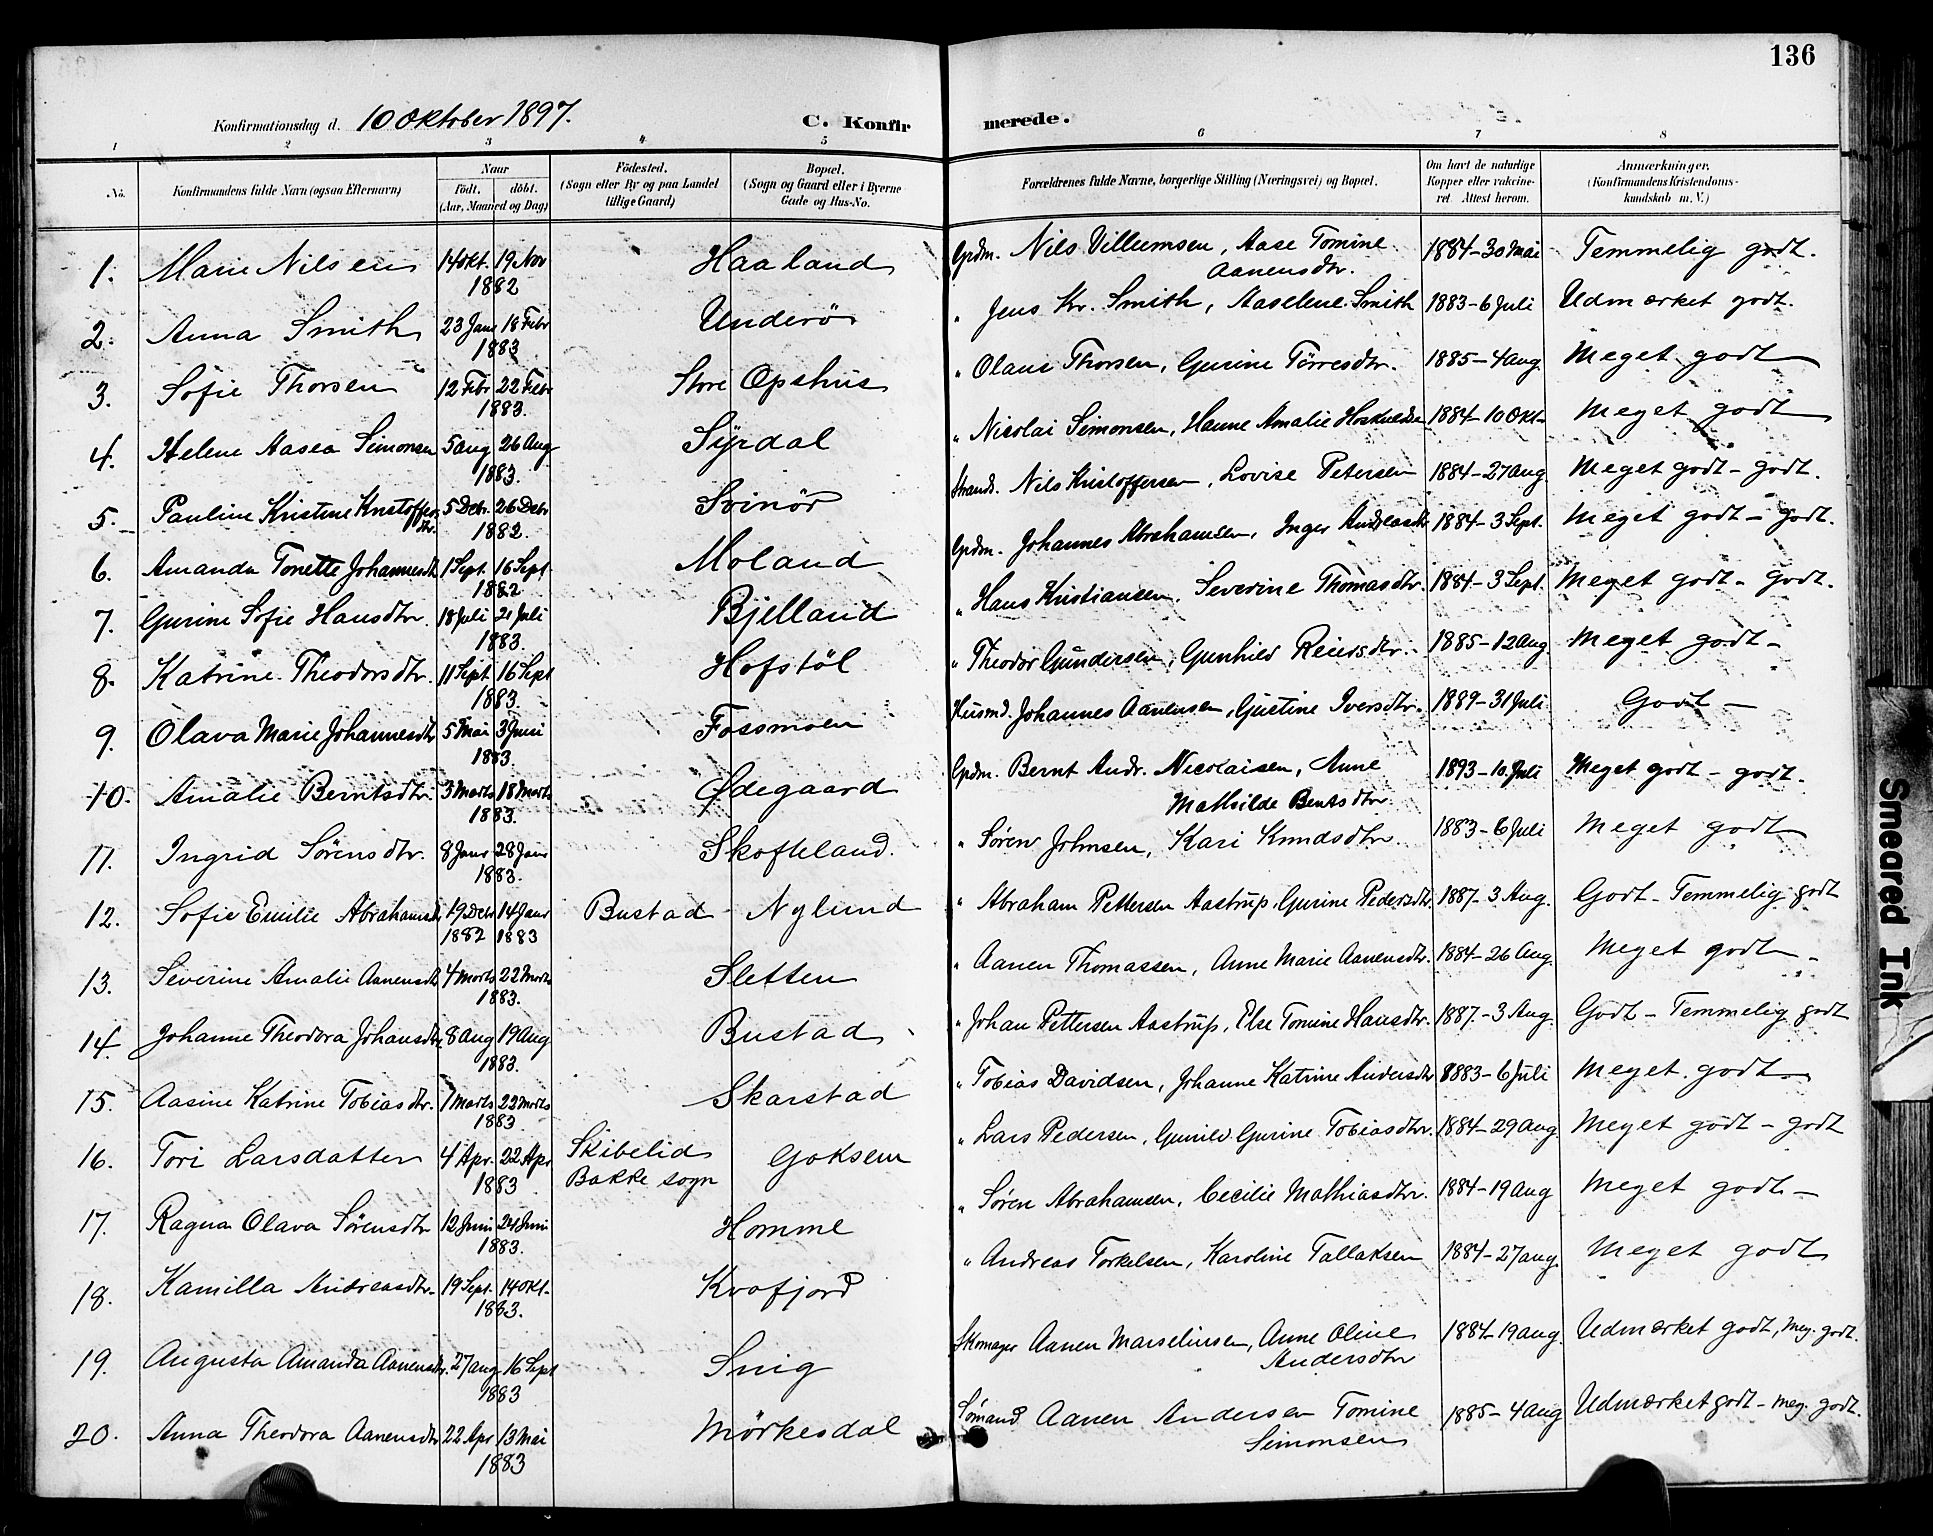 136
Konfirmationsdag d. 10 Oktober 1897. C. Konfir merede.
1 2 3 4 5 6 7 8
No. Konfirmandens fulde Navn (ogsaa Efternavn) Naar født. døbt. (Aar, Maaned og Dag) Födested. (Sogn eller By og paa Landet tillige Gaard) Bopæl. (Sogn og Gaard eller i Byerne Gade og Hus-No. Forældrenes fulde Navne, borgerlige Stilling (Næringsvei) og Bopæl. Om havt de naturlige Kopper eller vakcineret. Attest herom. Anmærkninger. (Konfirmandens Kristendomskundskab m. V.)
1. Marie Nilsen 14 Okt. 19 Nov 1882 Haaland Gpdm. Nils Villumsen, Aase Tomine Aanensdtr. 1884-30 Mai Temmelig godt.
2. Anna Smith 23 Janr 18 Febr 1883 Underö " Jens Kr. Smith, Aaselene Smith 1883-6 Juli Udmærket godt.
3. Sofie Thorsen 12 Febr 22 Febr 1883. Store Opshus " Olaus Thorsen, Gurine Törresdtr. 1885-4 Aug. Meget godt
4. Helene Aasea Simonsen 5 Aug 26 Aug 1883. Syrdal " Nicolai Simonsen, Hanne Amalie 1884-10 Okt- Meget godt
5. Pauline Kristine Kristoffersdtr. 5 Debr. 26 Debr 1882. Svinör Strands. Nils Kristoffersen, Lovise Petersen 1884-27 Aug. Meget godt - godt.
6. Amanda Tonette Johannesdt 1 Sept. 16 Sept. 1882 Moland Gpdm. Johannes Abrahamsen, Inger Andreasdtr 1884-3 Sept. Meget godt - godt.
7. Gurine Sofie Hansdtr. 18 Juli 21 Juli 1883. Bjelland " Hans Kristiansen, Severine Thomasdtr. 1884-3 Sept. Meget godt - godt.
8. Katrine Theodorsdtr. 11 Sept 16 Sept 1883. Hofstöl " Theodor Gundersen, Gunhild Reiersdtr. 1885-12 Aug Meget godt -
9. Olava Marie Johannesdtr 5 Mai 3 Juni 1883. Fossmoen Husmd. Johannes Aanensen, Gustine Iversdtr. 1889-31 Juli Godt -
10. Amalie Berntsdtr. 3 Marts 18 Marts 1883. Ødegaard Gpdm. Bernt Andr. Nicolaisen, Anne Mathilde Bentsdtr. 1893-10. Juli Meget godt - godt.
11. Ingrid Sörensdtr. 8 Janr 28 Janr 1883. Skofteland. " Sören Johnsen, Kari Knudsdtr. 1883-6 Juli Meget godt
12. Sofie Emilie Abrahamsdtr 19 Debr 1882 14 Janr 1883 Bustad - Nylund " Abraham Pettersen Aastrup, Gurine Pedersdtr. 1887-3 Aug. Godt - Temmelig godt
13. Severine Amalie Aanensdtr 4 Marts 22 Marts 1883. Sletten " Aanen Thomassen, Anne Marie Aanensdtr. 1884-26 Aug. Meget godt -
14. Johanne Theodora Johansdtr. 8 Aug 19 Aug 1883. Bustad " Johan Pettersen Aastrup, Else Tomine Hansdtr. 1887-3 Aug. Godt - Temmelig godt
15. Aasine Katrine Tobiasdtr. 7 Marts 22 Marts 1883. Skarstad " Tobias Davidsen, Johanne Katrine Andersdtr 1883-6 Juli Meget godt
16. Tori Larsdatter 4 Apr. 22 Apr 1883 Skibelid Bakke sogn Goksem " Lars Pedersen, Gunild Gurine Tobiasdtr. 1884-29 Aug. Meget godt - godt
17. Ragna Olava Sörensdtr 12 Juni 24 Juni 1883. Homme " Sören Abrahamsen, Cecilie Mathiasdtr. 1884-19 Aug Meget godt -
18. Kamilla Andreasdtr. 19 Sept. 14 Okt. 1883. Kvafjord " Andreas Torkelsen, Karoline Tallaksen 1884-27 Aug. Meget godt
19. Augusta Amanda Aanensdtr. 27 Aug. 16 Sept 1883 Snig Skomager Aanen Marselinsen, Anne Oline Andersdtr 1884-19 Aug. Udmærket godt, Meg. godt.
20. Anna Theodora Aanensdtr 22 Apr 13 Mai 1883 Mörkesdal Sömand Aanen Andersen Tomine Simonsen 1885-4 Aug Udmærket godt - Meg. godt.
Smeared Ink